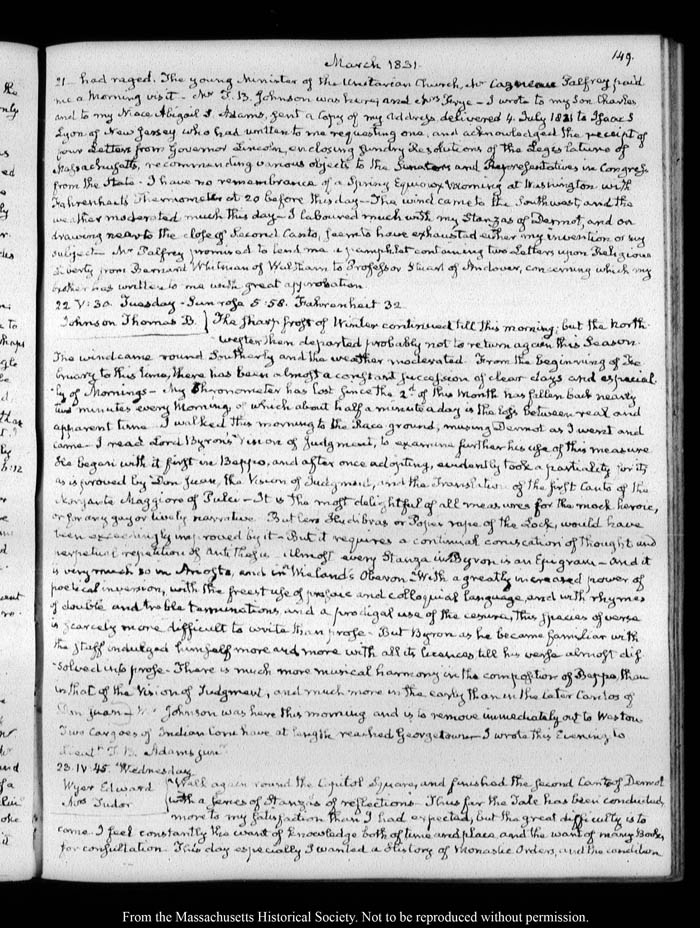 149.
March 1831.
21 had raged. The young Minister of the Unitarian Church, Mr Cazneau Palfrey paid
me a Morning visit - Mr T. B. Johnson was here; and Mrs Frye - I wrote to my Son Charles
and to my Niece Abigail S. Adams, sent a Copy of my Address, delivered 4. July 1821 to Isaac S
Lyon of New Jersey who had written to me requesting one, and acknowledged the receipt of
four Letters from Governor Lincoln, enclosing sundry Resolutions of the Legislature of
Massachusetts, recommending various objects to the Senators and Representatives in Congress
from the State. I have no remembrance of a Spring Equinox Morning at Washington with
Fahrenheit's Thermometer at 20 before this day - The wind came to the Southwest, and the
weather moderated much this day - I laboured much with my Stanzas of Dermot, and on
drawing near to the close of Second Canto, seem to have exhausted either my invention or my
subject - Mr Palfrey promised to lend me a pamphlet containing two Letters upon Religious
Liberty from Bernard Whitman of Waltham to Professor Stuart of Andover, concerning which my
brother has written to me with great approbation.
22 V:30. Tuesday - Sun rose 5.58. Fahrenheit 32
Johnson Thomas B. } The sharp frost of Winter continued till this morning; but the north-
wester then departed probably not to return again this Season.
The wind came round Southerly and the weather moderated. From the beginning of Fe
bruary to this time, there has been almost a constant succession of clear days and especial
ly of Mornings - My Chronometer has lost since the 2d of this Month has fallen back nearly
two minutes every Morning, of which about half a minute a day is the loss between real and
apparent time. I walked this morning to the Race ground, musing Dermot as I went and
came. I read Lord Byron's Vision of Judgment, to examine further his use of this measure
He began with it first in Beppo, and after once adopting, evidently took a partiality for it,
as is proved by Don Juan, the Vision of Judgment, and the Translation of the first Canto of the
Morgante Maggiore of Pulci - It is the most delightful of all measures for the mock heroic,
or for any gay or lively narrative. Butlers Hudibras or Popes rape of the Lock, would have
been exceedingly improved by it - But it requires a continual coruscation of thought and
perpetual repetition of Antithesis. Almost every Stanza in Byron is an Epigram - and it
is very much so in Ariosto, and in Wieland's Oberon. With a greatly increased power of
poetical inversion, with the freest use of prosaic and colloquial language, and with rhymes
of double and treble terminations, and a prodigal use of the cesura, this species of verse
is scarcely more difficult to write than prose - But Byron as he became familiar with
the stuff indulged himself more and more with all its licences, till his verse almost dis
solved into prose - There is much more musical harmony in the composition of Beppo, than
in that of the Vision of Judgment, and much more in the early than in the later Cantos of
Don Juan - Johnson was here this morning and is to remove immediately out to Weston
Two Cargoes of Indian Corn have at length reached Georgetown - I wrote this Evening to
Lieut T. B. Adams junr
23. IV:45. Wednesday
Wyer Edward } Walk again round the Capitol Square, and finished the Second Canto of Dermot
Mrs Tudor with a series of Stanzas of reflections - Thus far the Tale has been conducted,
more to my satisfaction than I had expected, but the great difficulty is to
come. I feel constantly the want of knowledge both of time and place, and the want of many Books,
for consultation. This day especially I wanted a History of Monastic Orders, and the condition
From the Massachusetts Historical Society. Not to be reproduced without permission.